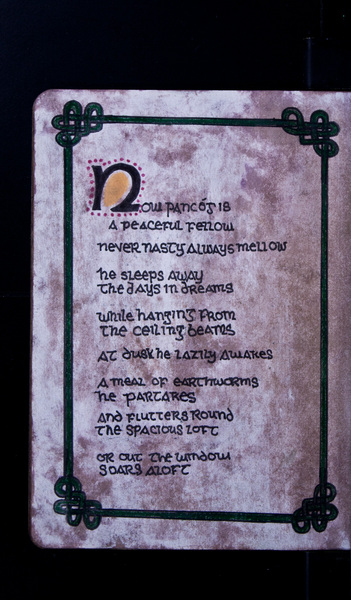 Now pancós is
a peaceful fellow
never nasty always mellow
he sleeps away
the days in dreams
while hanging from
the ceiling beams
at dusk he lazily awakes
a meal of earthworms
he partakes
and flutters round
the spacious loft
or out the window
soars aloft